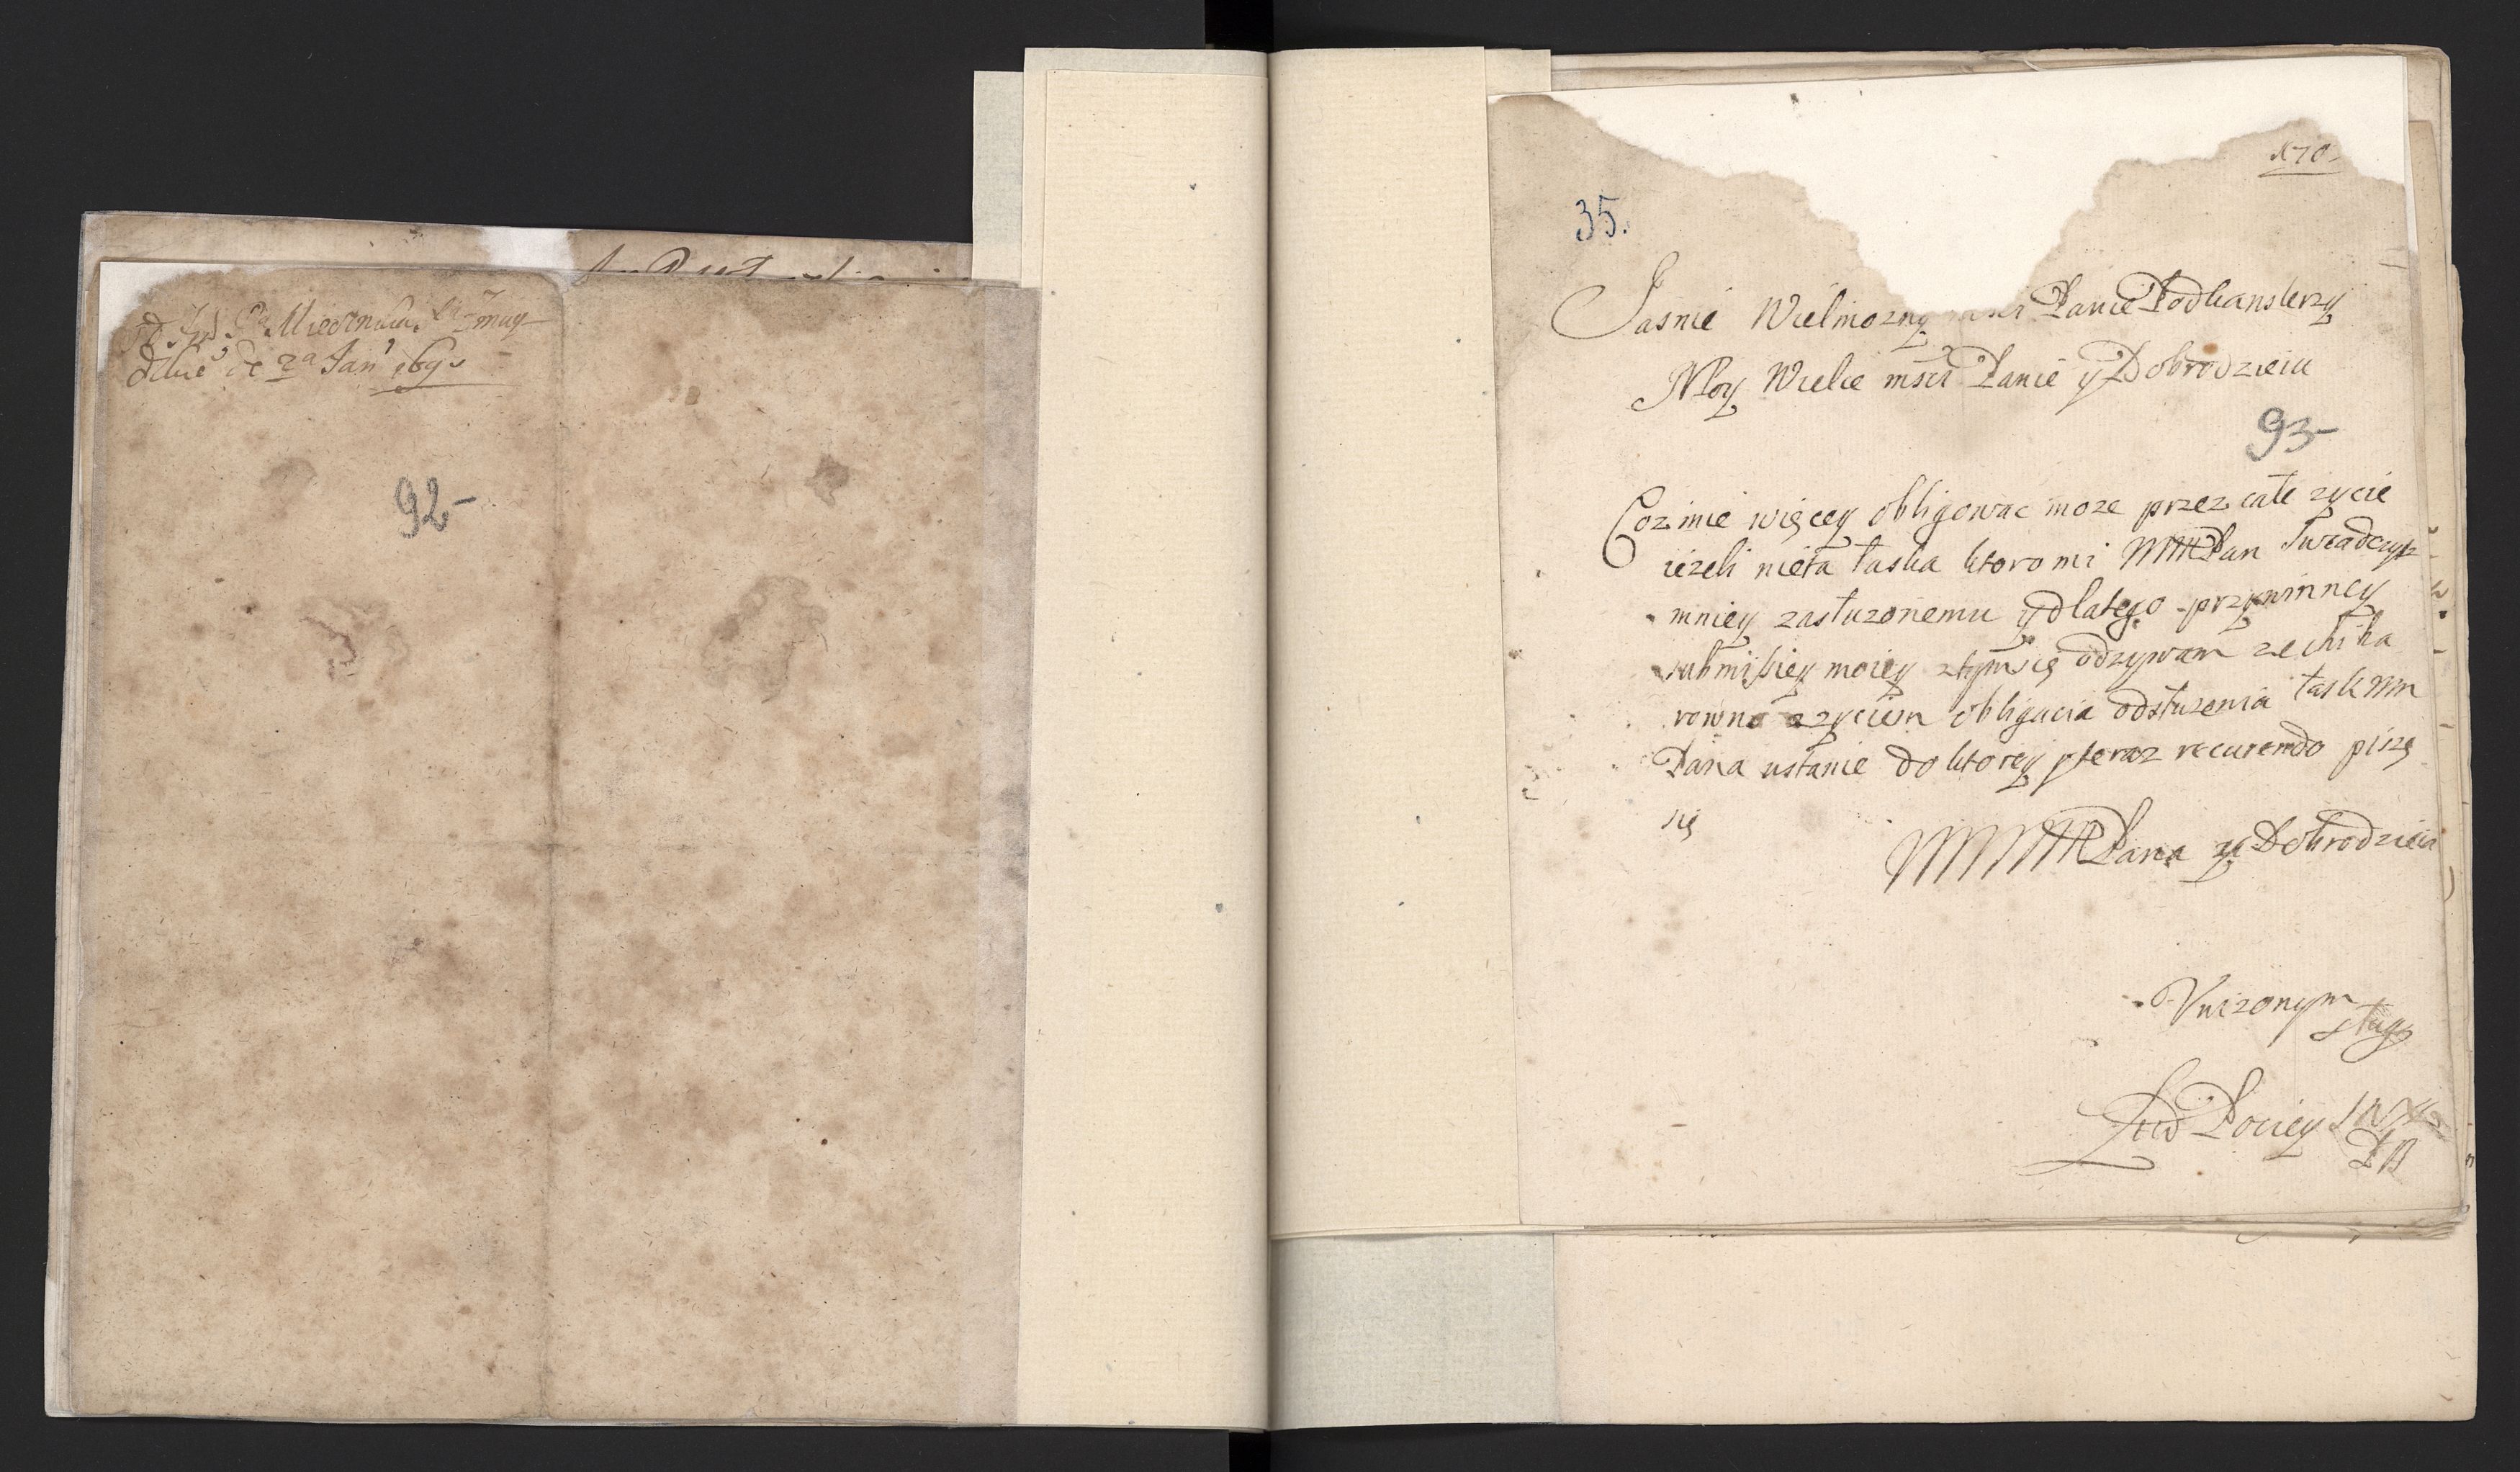 Miecznika Xa Zmuy
de 2a Jan 169
92-
N70-
35.
Jasnie Wielmozny msci Panie Podkanslerzy
Moy Wielce msci Panie y Dobrodzieiu
93-
Coz mie więcey obligowac moze przez całe zycie
iezeli nieta łaska ktoro mi MMM Pan swiadczysz
mniey zasłuzonemu y dlatego przywinney
submissiey moiey ztym się odzywam ze chiba
rowno z zyciem obligacia odsłuzenia łask MM
Pana ustanie do ktorey y teraz recurendo piszę
się
MMMM Pana y Dobrodzieia
Vnizonym
sługą
Lud Pociey